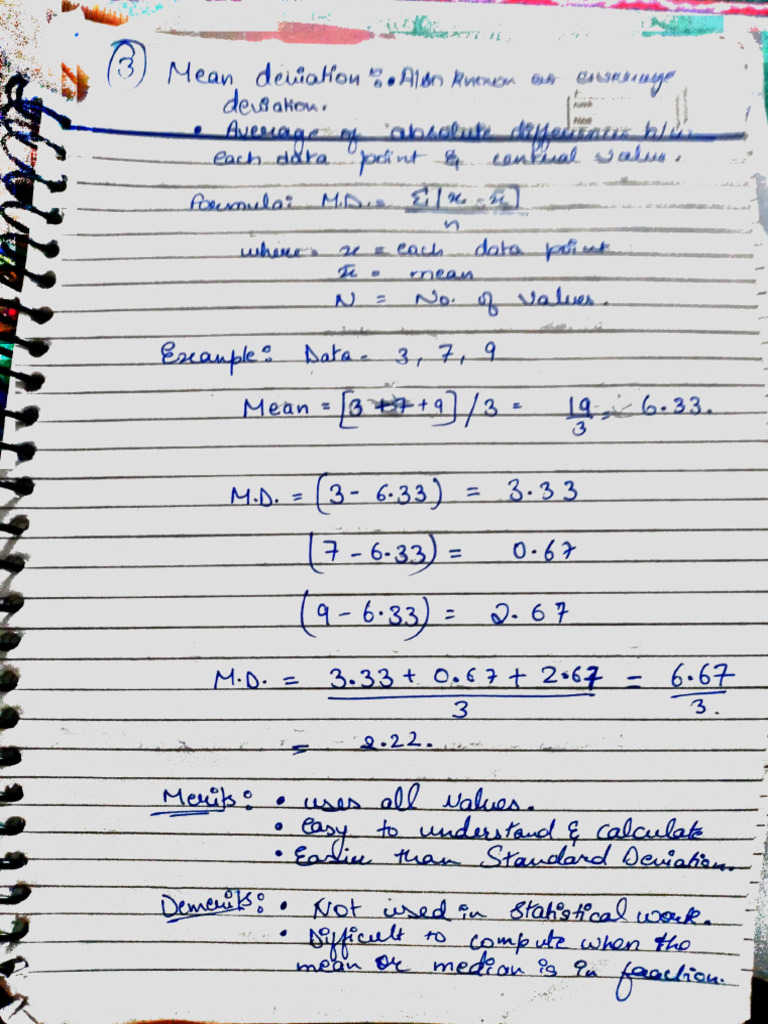 (3) Mean deviation :- • Also known as average
deviation.
• Average of absolute differences b/w
each data point & central value.
Formula: M.D. = Σ|x - x̄|
n
where = x = each data point
x̄ = mean
N = No. of values.
Example: Data = 3, 7, 9
Mean = [3 + 7 + 9] / 3 = 19/3 = 6.33.
M.D. = (3 - 6.33) = 3.33
(7 - 6.33) = 0.67
(9 - 6.33) = 2.67
M.D. = 3.33 + 0.67 + 2.67 / 3 = 6.67 / 3.
= 2.22.
Merits: • uses all values.
• easy to understand & calculate
• Easier than Standard Deviation.
Demerits: • Not used in statistical work.
• Difficult to compute when the
mean or median is in fraction.